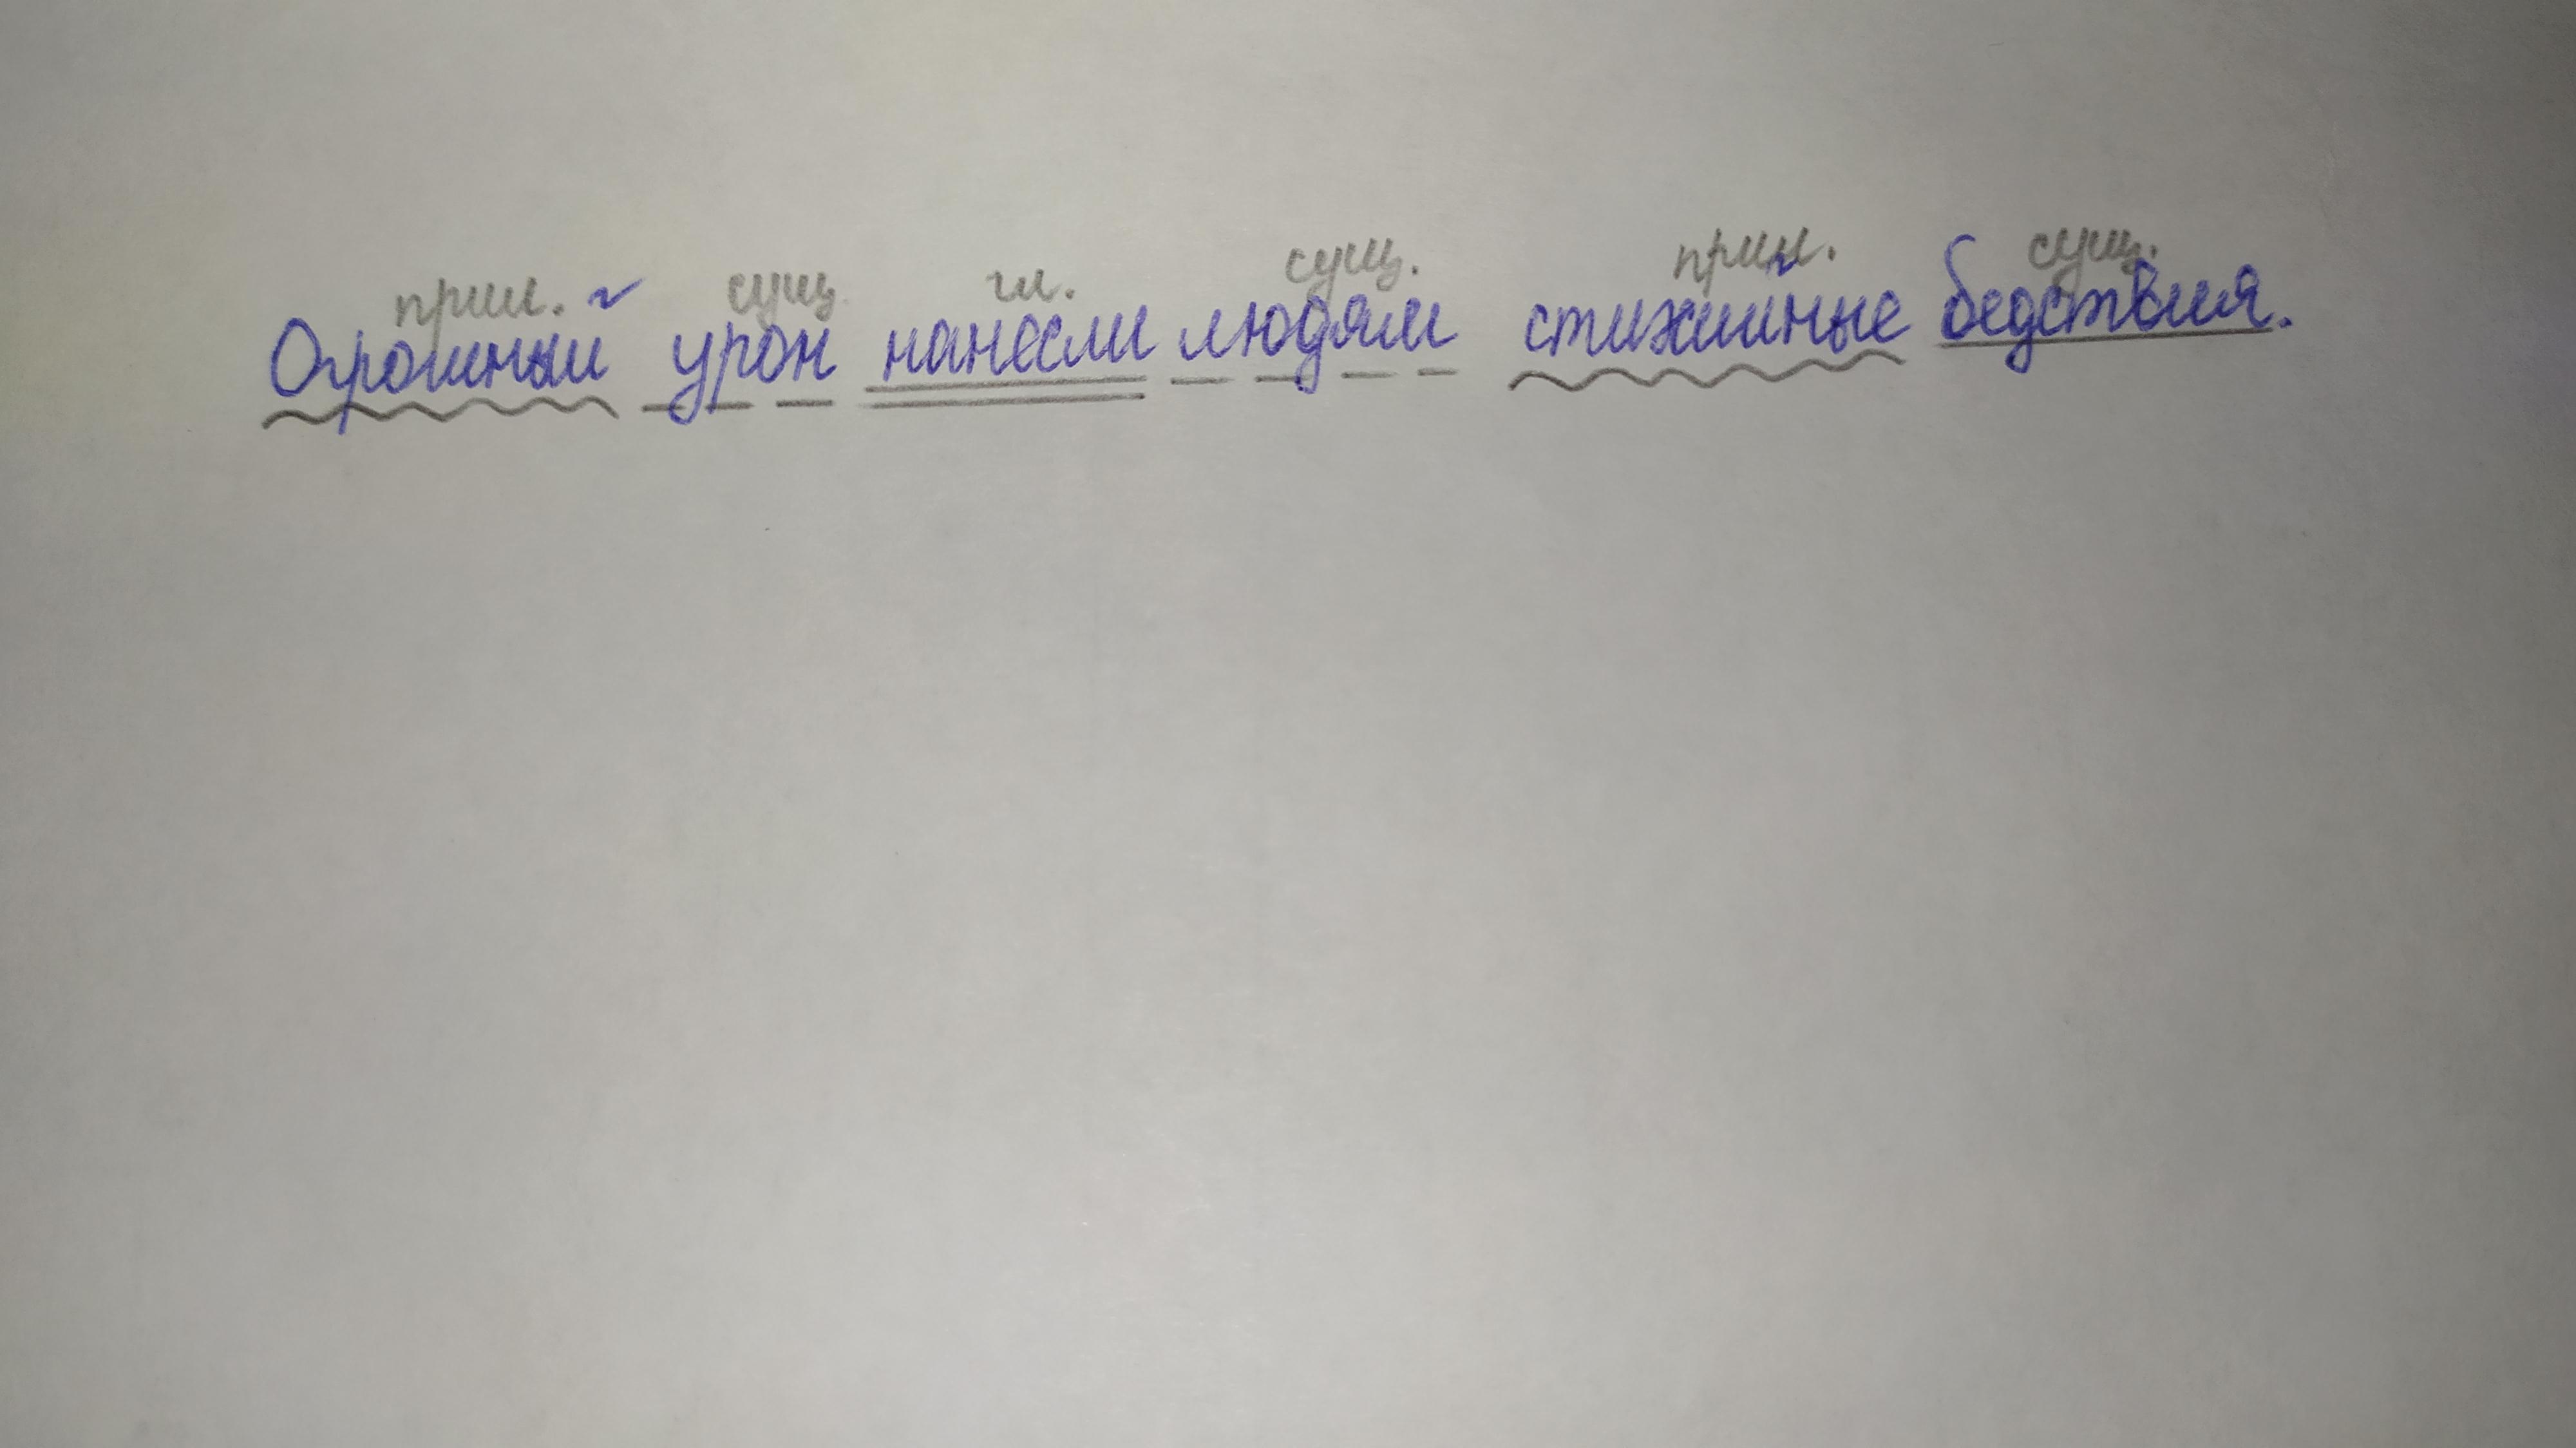 прил. сущ гл. сущ. прил. сущ.
Огромный урон нанесли людям стихийные бедствия.